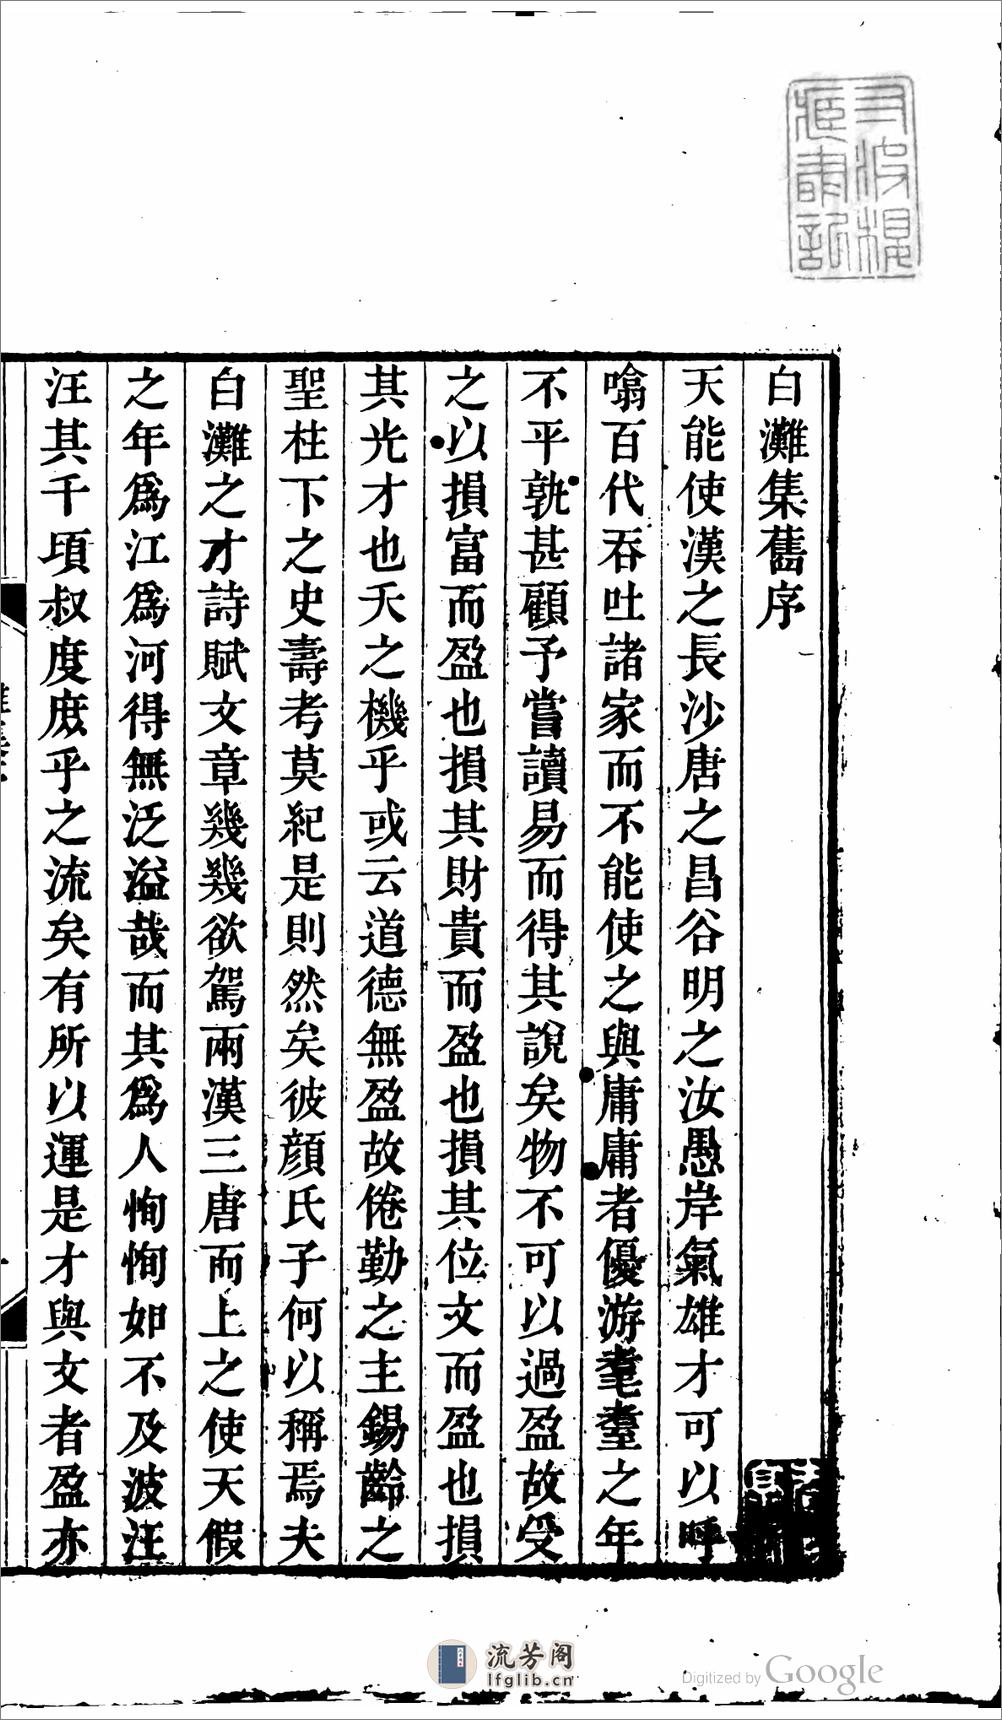 白灘集舊序
天能使漢之長沙唐之昌谷明之汝愚岸氣雄才可以呼
噏百代吞吐諸家而不能使之與庸庸者優游耄耋之年
不平孰甚顧予嘗讀易而得其說矣物不可以過盈故受
之以損富而盈也損其財貴而盈也損其位文而盈也損
其光才也天之機乎或云道德無盈故倦勤之主錫齡之
聖柱下之史壽考莫紀是則然矣彼顔氏子何以稱焉夫
白灘之才詩賦文章幾幾欲駕兩漢三唐而上之使天假
之年爲江爲河得無泛溢哉而其爲人恂恂如不及波汪
汪其千頃叔度庶乎之流矣有所以運是才與文者盈亦
流芳阁
lfglib.cn
Digitized by Google